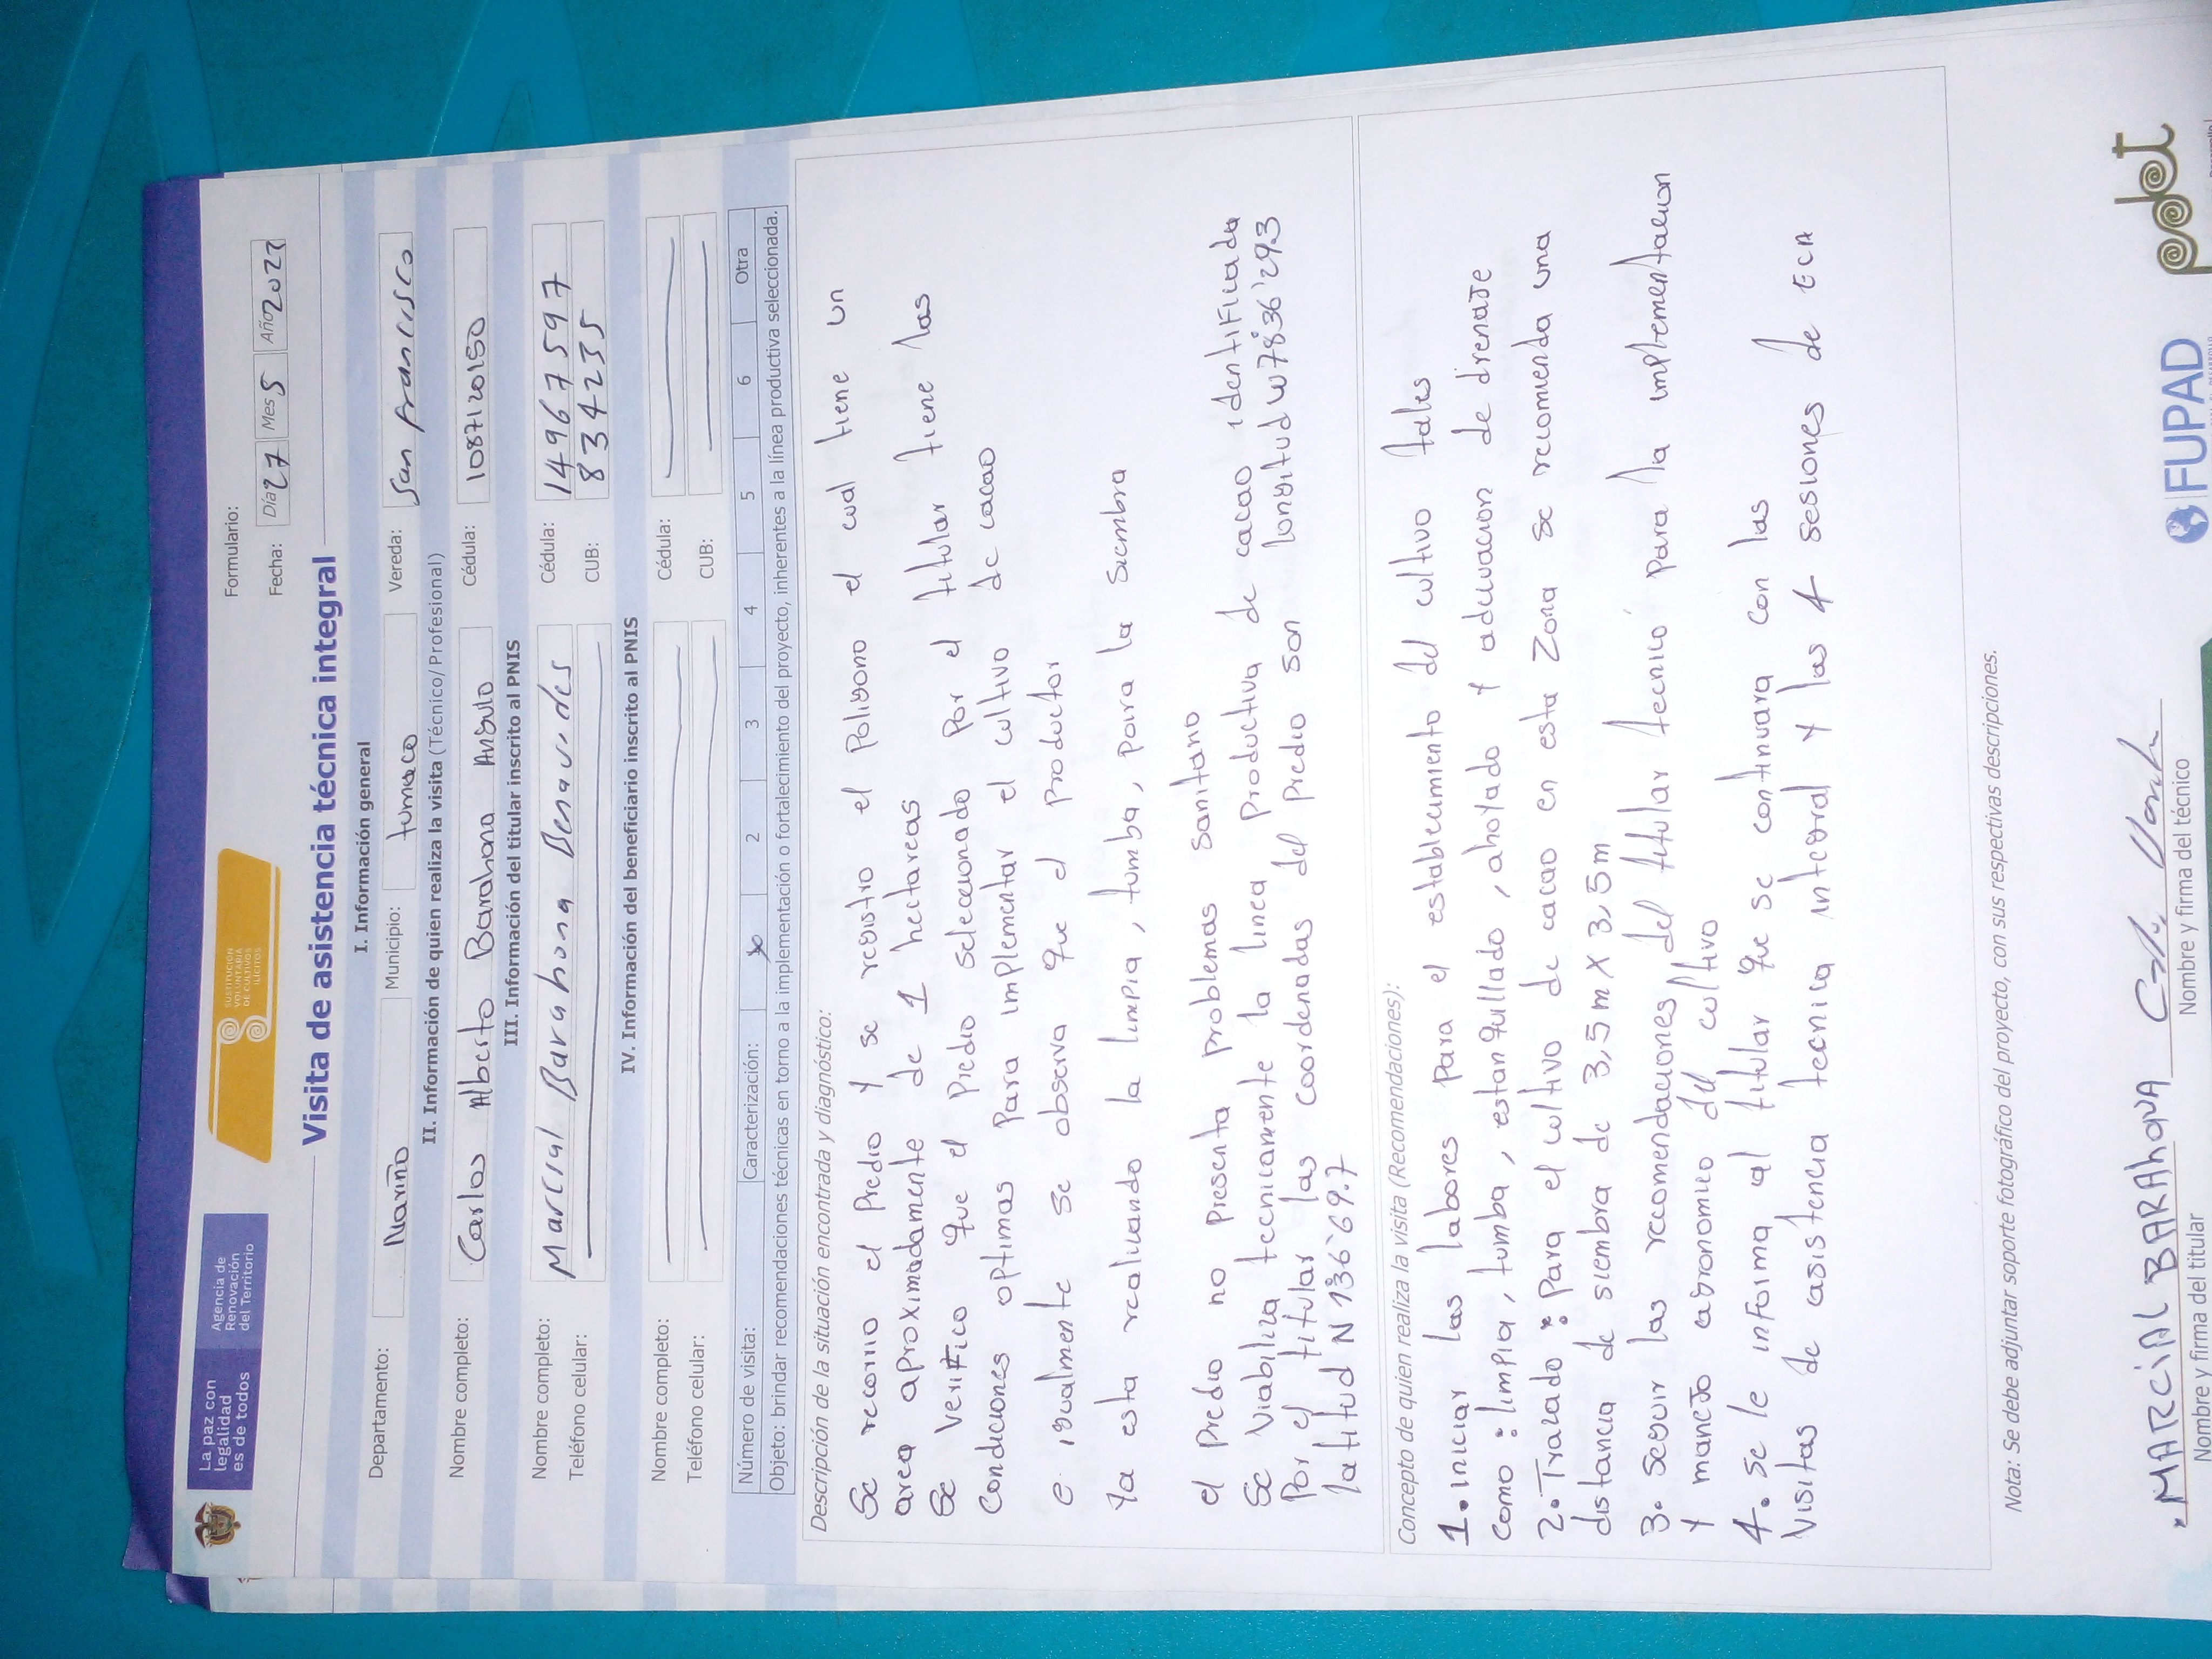 La paz con
legalidad
es de todos
Agencia de
Renovación
del Territorio
SUSTITUCIÓN
VOLUNTARIA
DE CULTIVOS
ILÍCITOS
Formulario:
Fecha: Día 27 Mes 5 Año 2022
Visita de asistencia técnica integral
I. Información general
Departamento: Nariño Municipio: tumaco Vereda: San francisco
II. Información de quien realiza la visita (Técnico/Profesional)
Nombre completo: Carlos Alberto Barahona Angulo Cédula: 1087120150
III. Información del titular inscrito al PNIS
Nombre completo: Marcial Barahona Benavides Cédula: 14967597
Teléfono celular: CUB: 834235
IV. Información del beneficiario inscrito al PNIS
Nombre completo: Cédula:
Teléfono celular: CUB:
Número de visita: Caracterización: 1 2 3 4 5 6 Otra
Objeto: brindar recomendaciones técnicas en torno a la implementación o fortalecimiento del proyecto, inherentes a la línea productiva seleccionada.
Descripción de la situación encontrada y diagnóstico:
Se recorrio el Predio y se registro el Poligono el cual tiene un
area aproximadamente de 1 hectareas
Se verifico que el Predio seleccionado Por el titular tiene las
Condiciones optimas Para implementar el cultivo de cacao
e igualmente se observa que el productor
ya esta realizando la limpia, tumba, para la siembra
el Predio no Presenta Problemas sanitario
Se viabiliza tecnicamente la linea Productiva de cacao identificada
Por el titular las coordenadas del Predio son longitud W78°36'29.3
latitud N 1°36'69.7
Concepto de quien realiza la visita (Recomendaciones):
1. iniciar las labores Para el establecimiento del cultivo tales
como: limpia, tumba, estanquillado, ahoyado y adecuacion de drenaje
2. Trazado: Para el cultivo de cacao en esta zona se recomienda una
distancia de siembra de 3,5 m X 3,5 m
3. Seguir las recomendaciones del titular tecnico para la implementacion
y manejo agronomico del cultivo
4. se le informa al titular que se continuara con las
visitas de asistencia tecnica integral y las 4 sesiones de ECA
Nota: Se debe adjuntar soporte fotográfico del proyecto, con sus respectivas descripciones.
MARCIAL BARAHONA
Nombre y firma del titular
Nombre y firma del técnico
FUPAD
pdet